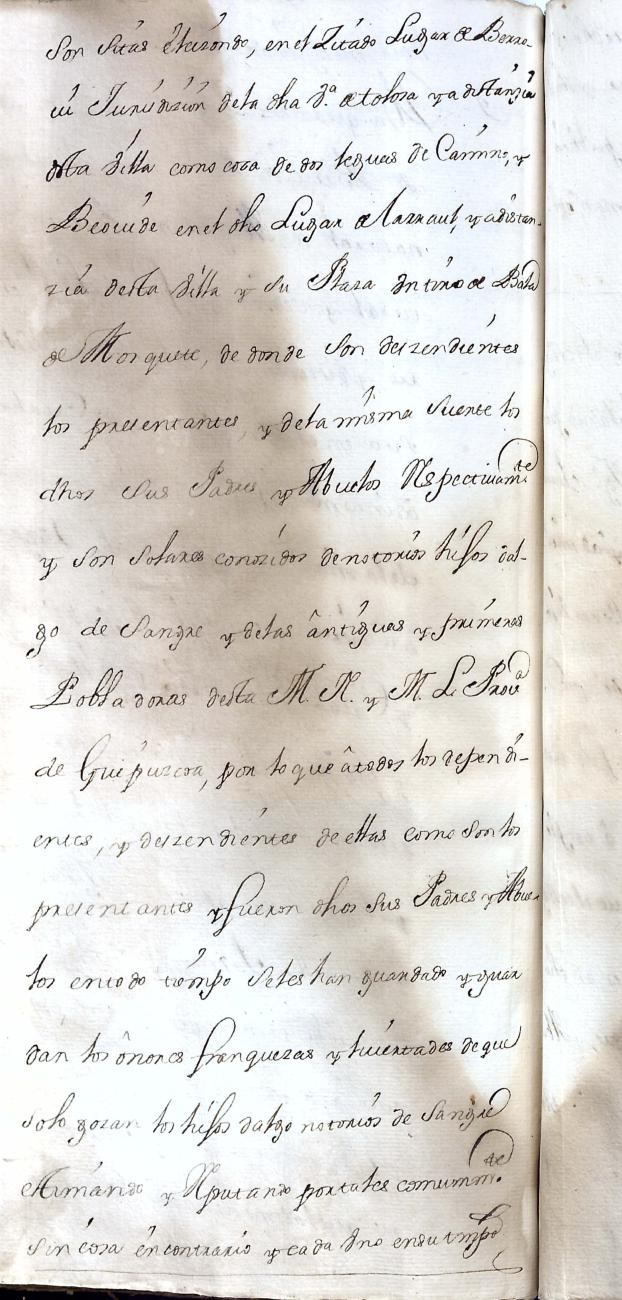 son sitas élizondo, en el Zitado Lugar de Berro-
ui Jurisdizión dela dha v.ª de tolosa y a distánzia
desta Villa como cosa de dos leguas de Camino, y
Beoiuide en el dho Lugar de Larraul, y a distan-
zia desta Villa y su Plaza Un tiro de Bala
de Mosquete, de donde son deszendiéntes
los presentantes, y dela misma suerte los
dhos sus Padres y Abuelos Respectiuam.te
y son solares conozidos de notorios hijos dal-
go de sangre y delas ântiguas y primeras
Pobladoras desta M. N. y M. L. Prou.a
de Guipuzcoa, por lo que âtodos los dependi-
entes, y deszendiéntes de ellas como son los
presentantes y fueron dhos sus Padres y Abue-
los en todo tiempo se les han guardado y guar
dan los ônores franquezas y liuertades de que
solo gozan los hijos dalgo notorios de sangre
estimándo y Reputando por tales comunm.te
sin cosa én contrario y cada Uno en su tmpo